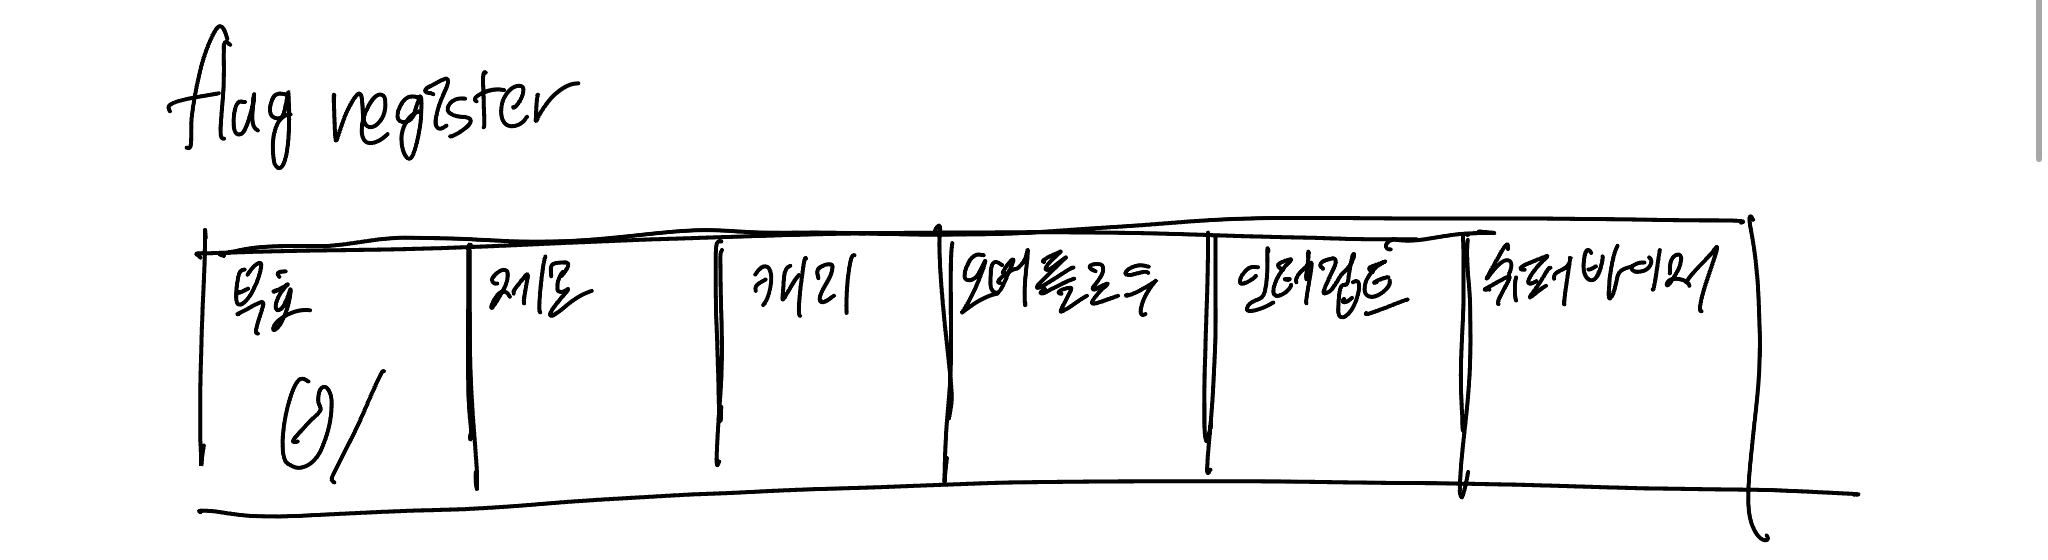 flag register
부호 제로 캐리 오버플로우 인터럽트 슈퍼바이저
0/